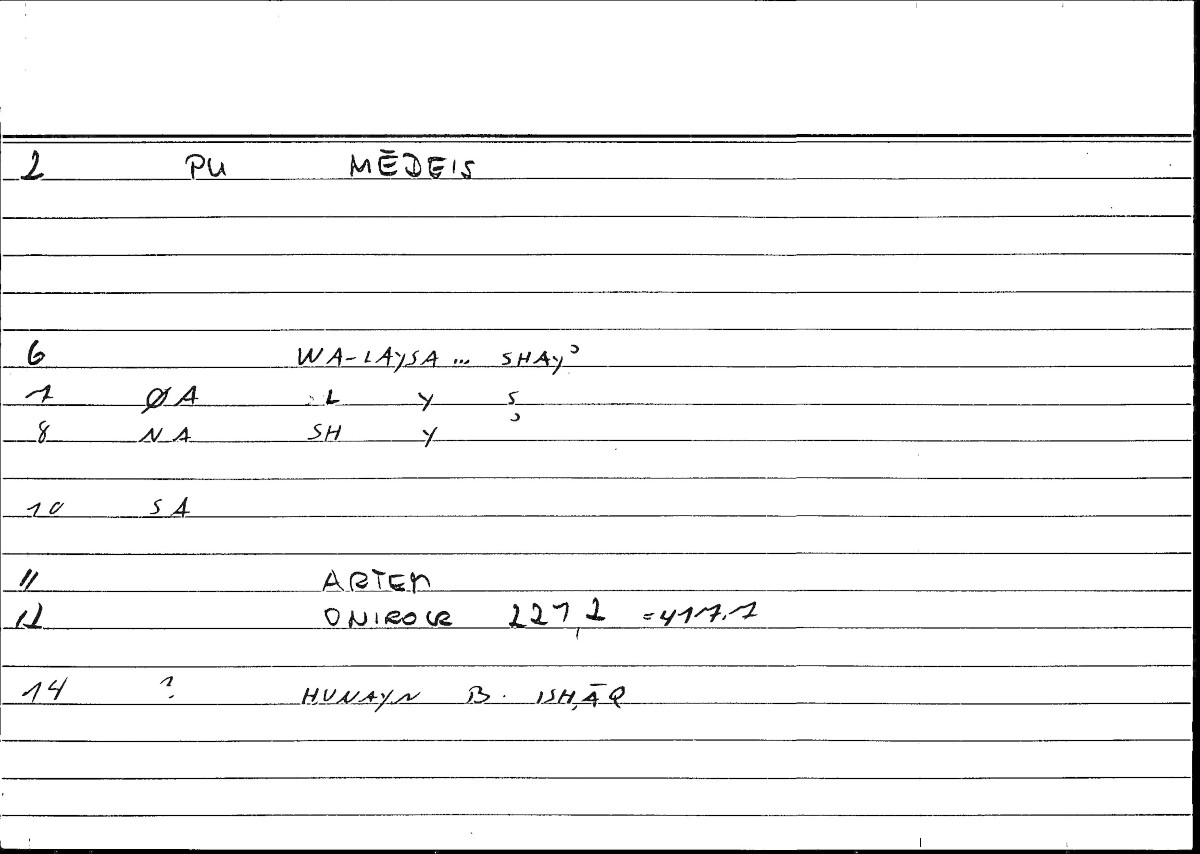 2 PU MĒDEIS
6 WA-LAYSA ... SHAYʾ
7 ØA L Y S
8 NA SH Y ʾ
10 SA
11 ARTEM
12 ONIROCR 227,2 = 417.7
14 ? HUNAYN B. ISḤĀQ